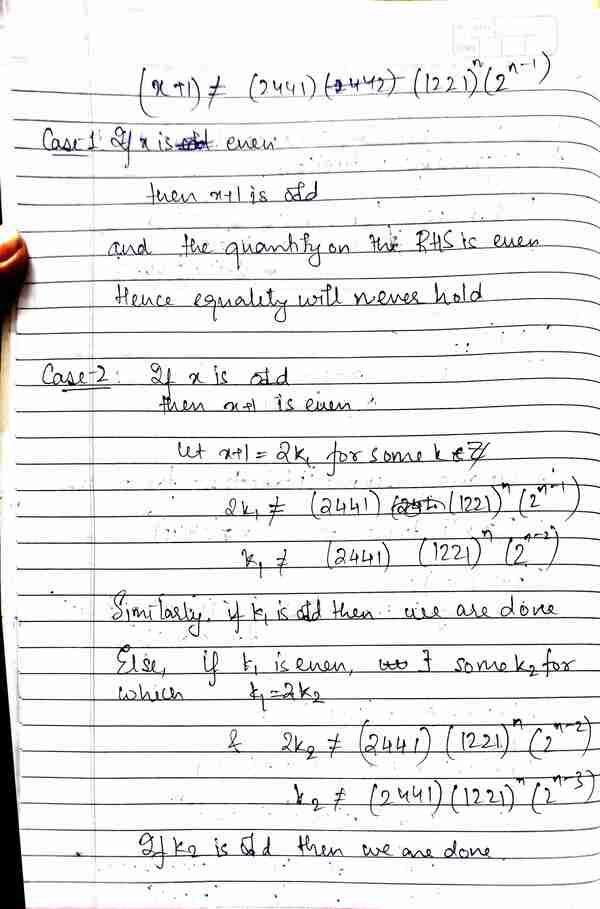 (x+1) ≠ (2441) (2442) (1221)^n (2^{n-1})
Case-1 If x is odd even
then x+1 is odd
and the quantity on the RHS is even
Hence equality will never hold
Case-2: If x is odd
then x+1 is even.
let x+1 = 2k₁ for some k ∈ Z
2k₁ ≠ (2441) (1221)^n (2^{n-1})
k₁ ≠ (2441) (1221)^n (2^{n-2})
Similarly, if k₁ is odd then we are done
Else, if k₁ is even, ∃ some k₂ for
which k₁=2k₂
& 2k₂ ≠ (2441) (1221)^n (2^{n-2})
k₂ ≠ (2441) (1221)^n (2^{n-3})
If k₂ is odd then we are done.